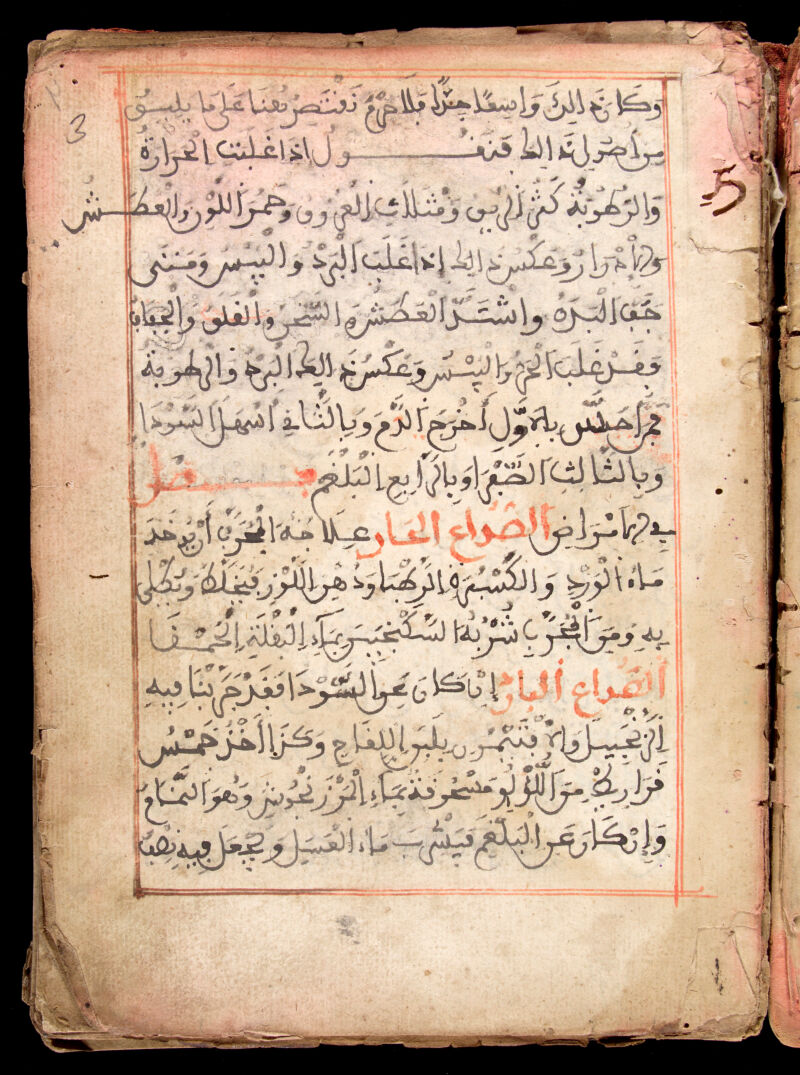 وكان ذالك واسعا جدا بلا جرم نقتصر هنا على ما يليق
من اصول ذالك فنقول اذا غلبت الحرارة
والرطوبة كثر الريق وامتلات العروق وحمر اللون والعطش
والادرار وعكس ذالك اذا غلب البرد واليبس ومتى
جف البدن واشتد العطش والسهر والقلق والجفاف
فقد غلب الحر واليبس وعكس ذالك البرد والرطوبة
بالاول أخرج الدم وبالثاني اسهل السودا
وبالثالث الصفرا وبالرابع البلغم فصل
في امراض الصداع الحار علاجه المجرب أن يوخذ
ماء الورد والكسبرة الرطبا ودهن اللوز فيخلط ويطلى
به ومن المجرب شربه السكنجبين بماء البقلة الحمقا
الصداع البارد إن كان عن السودا فقد جربنا فيه
الزنجبيل والافتيمون بلبن اللقاح وكذا أخذ خمس
قراريط من اللؤلؤ مسحوقة بماء المرزنجوش وهو النمام
وإن كان عن البلغم فيشرب ماء العسل ويجعل فيه نصف
3
5